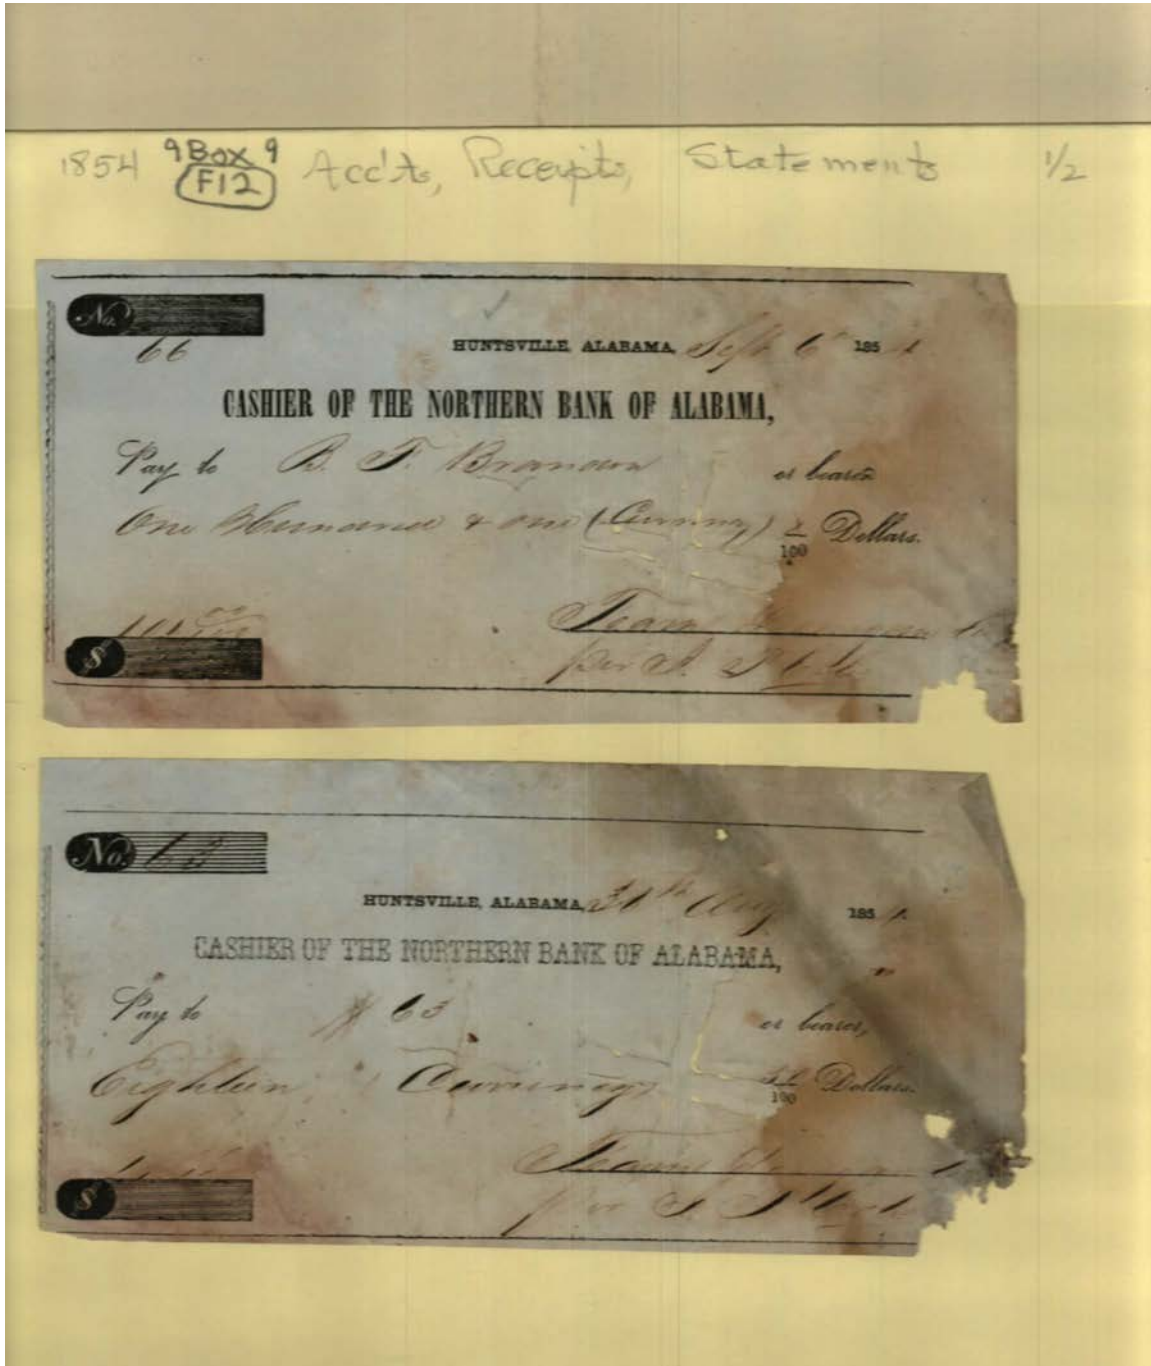 1854 9Box9 Acc'ts, Receipts, Statements 1/2
F12
No.
66
HUNTSVILLE, ALABAMA, Sept 6th 1854
CASHIER OF THE NORTHERN BANK OF ALABAMA,
Pay to B. F. Brandon or bearer
One Hundred & one (Currency) 100 Dollars.
$
per
No. 63
HUNTSVILLE, ALABAMA, Aug 1854
CASHIER OF THE NORTHERN BANK OF ALABAMA,
Pay to # 63 or bearer,
Eighteen (Currency) 100 Dollars.
$
per